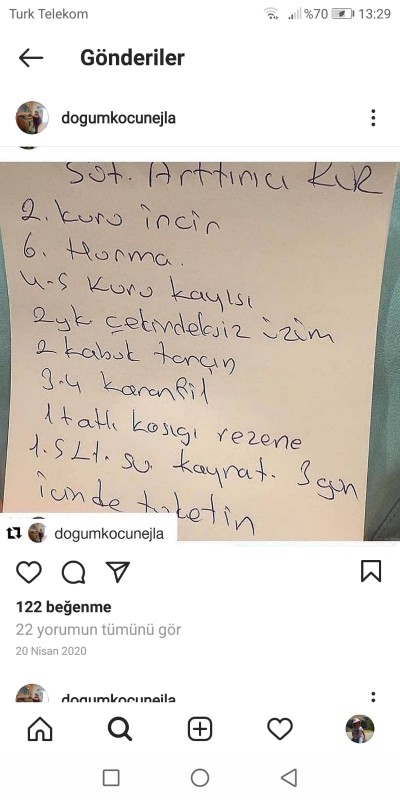 Turk Telekom %70 13:29
Gönderiler
dogumkocunejla
Süt. Arttırıcı KÜR
2. kuru incir
6. Hurma.
4-5 Kuru kayısı
2yk çekirdeksiz üzüm
2 kabuk tarçın
3-4 karanfil
1 tatlı kaşığı rezene
1.5 Lt. su kaynat. 3 gün
içinde tüketin
dogumkocunejla
122 beğenme
22 yorumun tümünü gör
20 Nisan 2020
dogumkocunejla